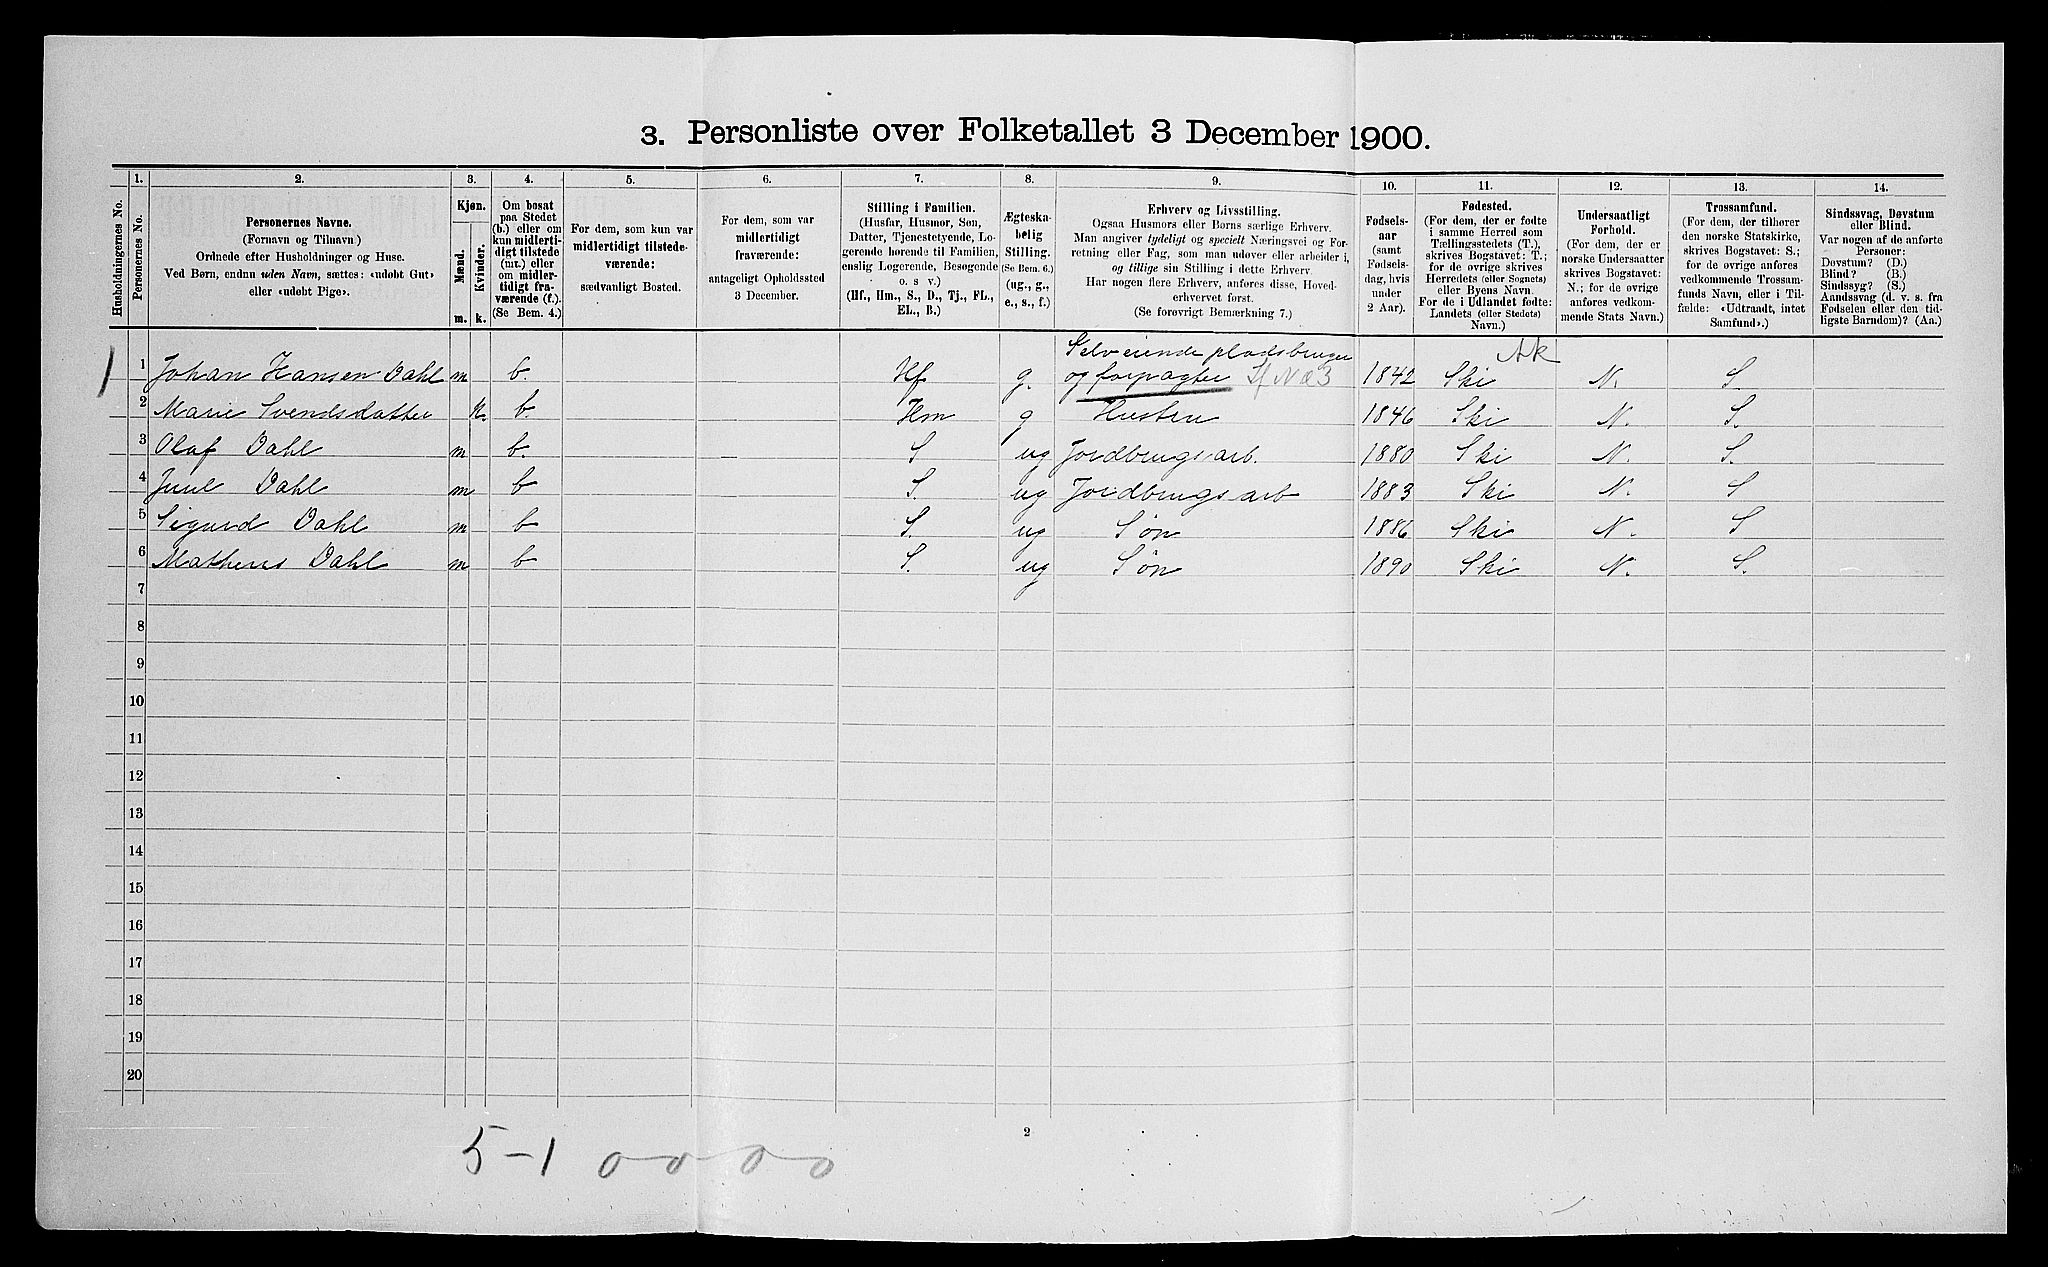 3. Personliste over Folketallet 3 December 1900.
Husholdningernes No.
1.
Personernes No.
2.
Personernes Navne.
(Fornavn og Tilnavn)
Ordnede efter Husholdninger og Huse.
Ved Børn, endnu uden Navn, sættes: «udøbt Gut»
eller «udøbt Pige».
3.
Kjøn.
Mænd.
m.
Kvinder.
k.
4.
Om bosat
paa Stedet
(b.) eller om
kun midlerti-
digt tilstede
(mt.) eller
om midler-
tidigt fra-
værende (f.).
(Se Bem. 4.)
5.
For dem, som kun var
midlertidigt tilstede-
værende:
sædvanligt Bosted.
6.
For dem, som var
midlertidigt
fraværende:
antageligt Opholdssted
3 December.
7.
Stilling i Familien.
(Husfar, Husmor, Søn,
Datter, Tjenestetyende, Lo-
gerende hørende til Familien,
enslig Logerende, Besøgende
o. s v.)
(Hf., Hm., S., D., Tj., FL.,
EL., B.)
8.
Ægteska-
belig
Stilling.
(Se Bem. 6.)
(ug., g.,
e., s., f.)
9.
Erhverv og Livsstilling.
Ogsaa Husmors eller Børns særlige Erhverv.
Man angiver tydeligt og specielt Næringsvei og For-
retning eller Fag, som man udøver eller arbeider i,
og tillige sin Stilling i dette Erhverv.
Har nogen flere Erhverv, anføres disse, Hoved-
erhvervet først.
(Se forøvrigt Bemærkning 7.)
10.
Fødsels-
aar
(samt
Fødsels-
dag, hvis
under
2 Aar).
11.
Fødested.
(For dem, der er fødte
i samme Herred som
Tællingsstedets (T.),
skrives Bogstavet: T.;
for de øvrige skrives
Herredets (eller Sognets)
eller Byens Navn.
For de i Udlandet fødte:
Landets (eller Stedets)
Navn.)
12.
Undersaatligt
Forhold.
(For dem, der er
norske Undersaatter
skrives Bogstavet:
N.; for de øvrige
anføres vedkom-
mende Stats Navn.)
13.
Trossamfund.
(For dem, der tilhører
den norske Statskirke,
skrives Bogstavet: S.;
for de øvrige anføres
vedkommende Trossam-
funds Navn, eller i Til-
fælde: «Udtraadt, intet
Samfund».)
14.
Sindssvag, Døvstum
eller Blind.
Var nogen af de anførte
Personer:
Døvstum? (D.)
Blind? (B.)
Sindssyg? (S.)
Aandssvag (d. v. s. fra
Fødselen eller den tid-
ligste Barndom)? (Aa.)
Selveiende pladsbruger Ak
1 1 Johan Hansen Dahl m b. Hf g. og forpagter 1842 Ski N. S.
2 Marie Svendsdatter k b. Hm g Hustru 1846 Ski N. S.
3 Olaf Dahl m b. S ug Jordbrugsarb. 1880 Ski N. S.
4 Juul Dahl m b S. ug Jordbrugsarb 1883 Ski N. S
5 Sigurd Dahl m b S. ug Søn 1886 Ski N. S
6 Matheus Dahl m b S. ug Søn 1890 Ski N. S.
7
8
9
10
11
12
13
14
15
16
17
18
19
20
2
5-1 0 0 0 0